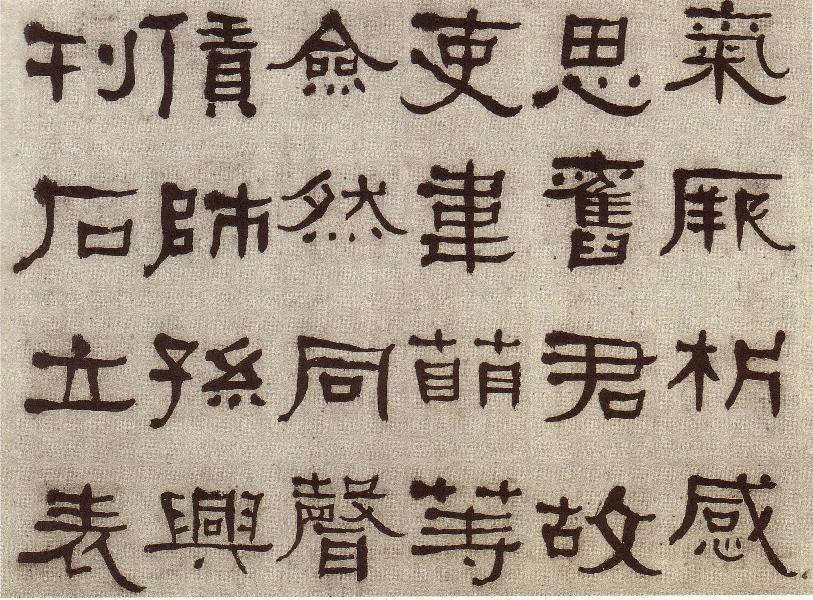 氣厥析感
思舊君故
吏韋萌等
僉然同聲
賃師孫興
刊石立表